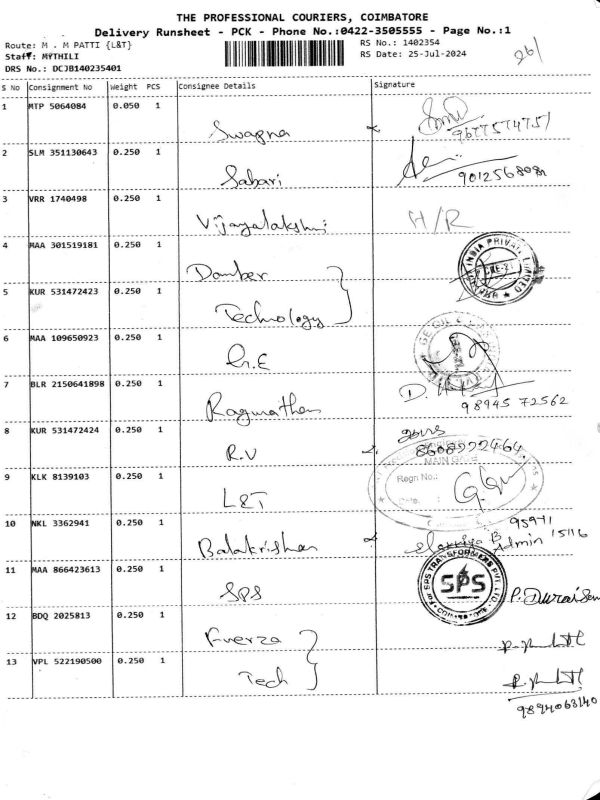 THE PROFESSIONAL COURIERS, COIMBATORE
Delivery Runsheet - PCK - Phone No.:0422-3505555 - Page No.:1
Route: M . M PATTI {L&T}
RS No.: 1402354
Staff: MYTHILI
RS Date: 25-Jul-2024
DRS No.: DCJB140235401
26/
S No Consignment No Weight PCS Consignee Details Signature
1 MTP 5064084 0.050 1
Swapna
2 SLM 351130643 0.250 1
Sabari
3 VRR 1740498 0.250 1
Vijayalakshmi H/R
4 MAA 301519181 0.250 1
INDIA PRIVATE LIMITED
5 KUR 531472423 0.250 1
Technology
6 MAA 109650923 0.250 1
G.E
7 BLR 2150641898 0.250 1
98945 72562
8 KUR 531472424 0.250 1
R.V
MAIN GATE
9 KLK 8139103 0.250 1
Regn No.:
L&T
10 NKL 3362941 0.250 1
Balakrishnan
Admin 15116
11 MAA 866423613 0.250 1
For SPS TRANSFORMERS PVT. LTD.
SPS
COIMBATORE
SPS
12 BDQ 2025813 0.250 1
Fuerza
13 VPL 522190500 0.250 1
Tech
9894063140